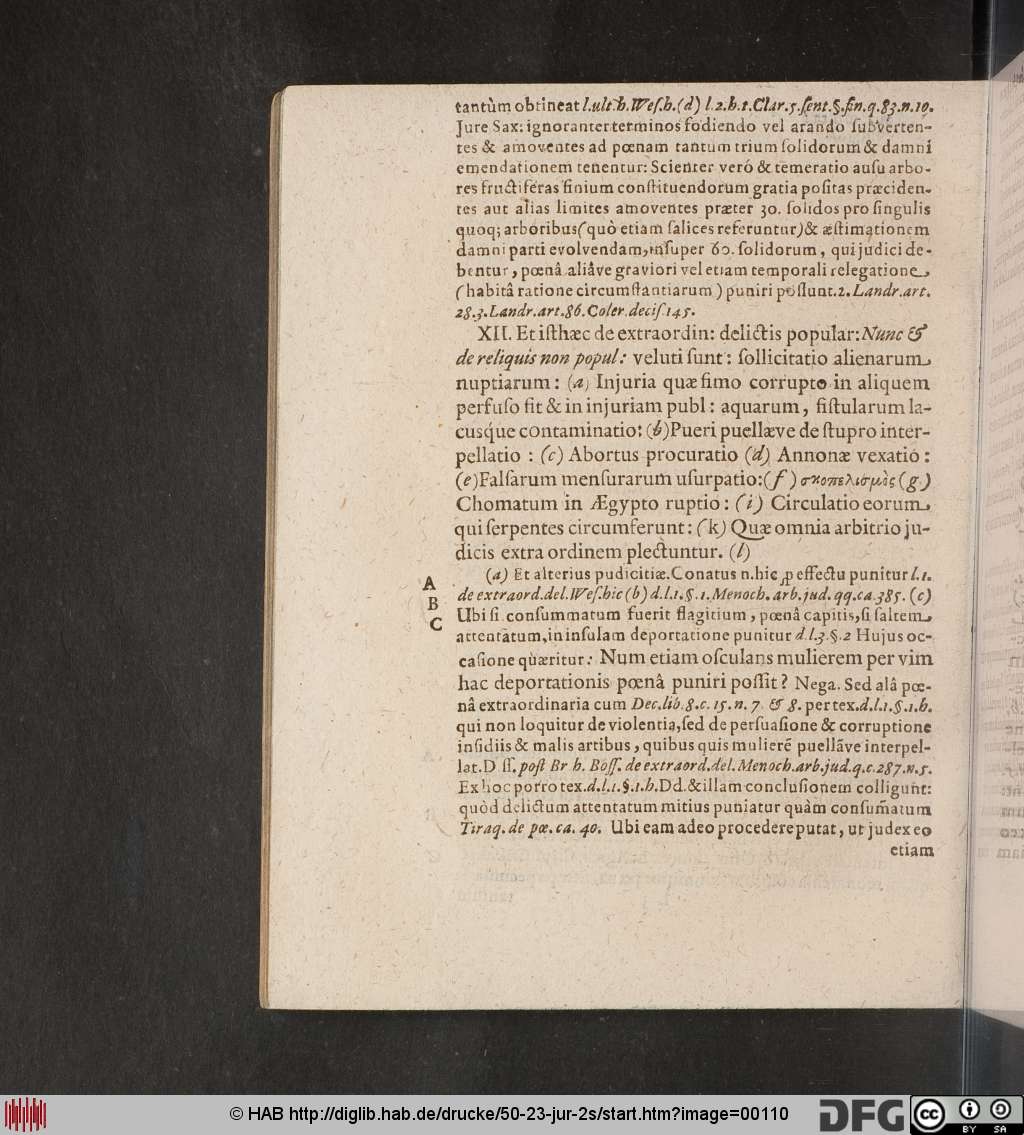 tantùm obtineat l.ult.h.Weſ.h.(d) l.2.h.t.Clar.5.ſent.§.fin.q.83.n.10.
Jure Sax: ignoranter terminos fodiendo vel arando ſubverten-
tes & amoventes ad pœnam tantum trium ſolidorum & damni
emendationem tenentur: Scienter veró & temeratio auſu arbo-
res fructiferas finium conſtituendorum gratia poſitas præciden-
tes aut alias limites amoventes præter 30. ſolidos pro ſingulis
quoq; arboribus (quò etiam ſalices referuntur) & æſtimationem
damni parti evolvendam, inſuper 60. ſolidorum, qui judici de-
bentur, pœnâ aliâve graviori vel etiam temporali relegatione,
(habitâ ratione circumſtantiarum) puniri poſſunt. 2. Landr.art.
28.3. Landr.art.86. Coler. deciſ 145.
XII. Et iſthæc de extraordin: delictis popular: Nunc &
de reliquis non popul: veluti ſunt: ſollicitatio alienarum
nuptiarum: (a) Injuria quæ fimo corrupto in aliquem
perfuſo fit & in injuriam publ: aquarum, fiſtularum la-
cusq́ue contaminatio: (b) Pueri puellæve de ſtupro inter-
pellatio : (c) Abortus procuratio (d) Annonæ vexatio:
(e) Falſarum menſurarum uſurpatio: (f) σκοπελισμὸς (g)
Chomatum in Ægypto ruptio: (i) Circulatio eorum
qui ſerpentes circumferunt: (k) Quæ omnia arbitrio ju-
dicis extra ordinem plectuntur. (l)
A (a) Et alterius pudicitiæ. Conatus n. hic ꝓ effectu punitur l.1.
B de extraord.del. Weſ.hic (b) d.l.1.§.1. Menoch. arb. jud. qq.ca.385. (c)
C Ubi ſi conſummatum fuerit flagitium, pœnâ capitis, ſi ſaltem
attentatum, in inſulam deportatione punitur d.l.3.§.2 Hujus oc-
caſione quæritur: Num etiam oſculans mulierem per vim
hac deportationis pœnâ puniri poſſit? Nega. Sed alâ pœ-
nâ extraordinaria cum Dec.lib.8.c.15.n.7. & 8. per tex.d.l.1.§.1.h.
qui non loquitur de violentia, ſed de perſuaſione & corruptione
inſidiis & malis artibus, quibus quis mulierē puellāve interpel-
lat. D ſſ. poſt Br h. Boſſ. de extraord.del. Menoch.arb.jud.q.c.287.n.5.
Ex hoc porro tex.d.l.1.§.1.h. Dd. & illam concluſionem colligunt:
quòd delictum attentatum mitius puniatur quàm conſum̃atum
Tiraq. de pœ. ca. 40. Ubi eam adeo procedere putat, ut judex eo
etiam
© HAB http://diglib.hab.de/drucke/50-23-jur-2s/start.htm?image=00110
DFG
cc BY SA